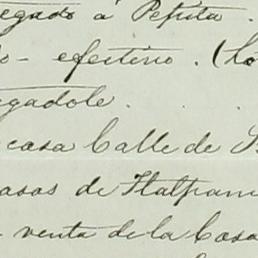 egado á Pepita.
o- efectivo. (Lo
egadole.
casa Calle de S
casas de Tlalpam
venta de la Casa